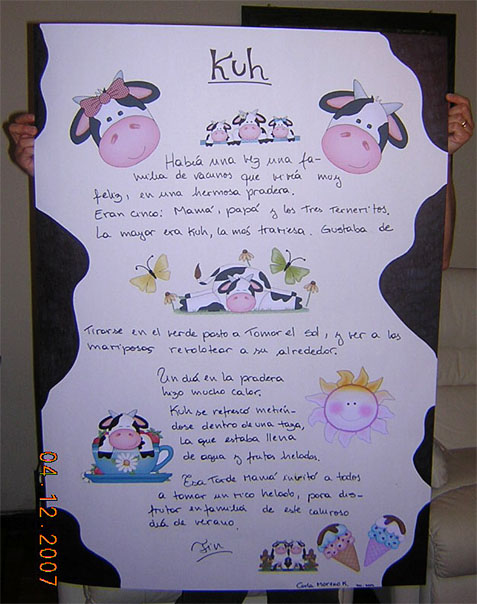 Kuh
Había una vez una fa-
milia de vacunos que vivía muy
feliz, en una hermosa pradera.
Eran cinco: Mamá, papá y los Tres Terneritos.
La mayor era Kuh, la más traviesa. Gustaba de
Tirarse en el verde pasto a Tomar el sol, y ver a las
mariposas revolotear a su alrededor.
Un día en la pradera
hizo mucho calor.
Kuh se refrescó metién-
dose dentro de una taza,
la que estaba llena
de agua y frutas heladas.
Esa Tarde Mamá invitó a todos
a tomar un rico helado, para dis-
frutar en familia de este caluroso
día de verano.
Fin
Carla
04.12.2007